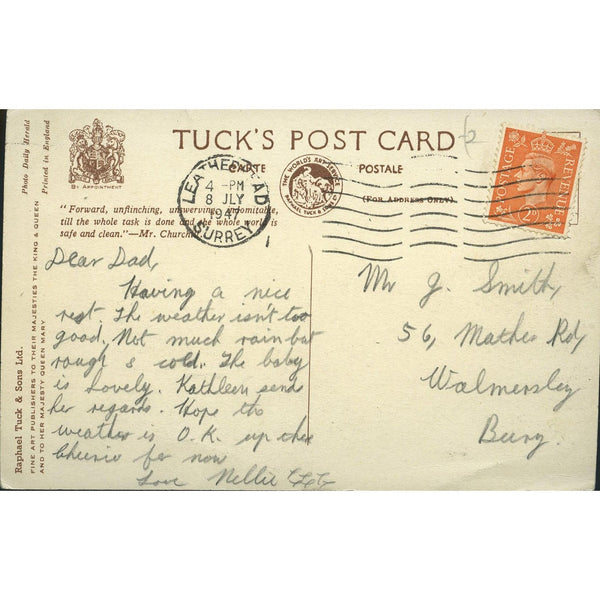 TUCK'S POST CARD
CARTE POSTALE
(FOR ADDRESS ONLY)
BY APPOINTMENT
THE WORLD'S ART SERVICE
RAPHAEL TUCK & SONS LTD
"Forward, unflinching, unswerving, indomitable,
till the whole task is done and the whole world is
safe and clean."—Mr. Churchill
LEATHERHEAD
4 - PM
8 JLY
194
SURREY
POSTAGE
REVENUE
2D
Dear Dad,
Having a nice
rest. The weather isn't too
good. Not much rain but
rough & cold. The baby
is lovely. Kathleen sends
her regards. Hope the
weather is O.K. up there
Cheerio for now
Love Nellie
Mr J. Smith,
56, Mather Rd,
Walmersley
Bury.
Photo Daily Herald
Printed in England
Raphael Tuck & Sons Ltd.
FINE ART PUBLISHERS TO THEIR MAJESTIES THE KING & QUEEN
AND TO HER MAJESTY QUEEN MARY